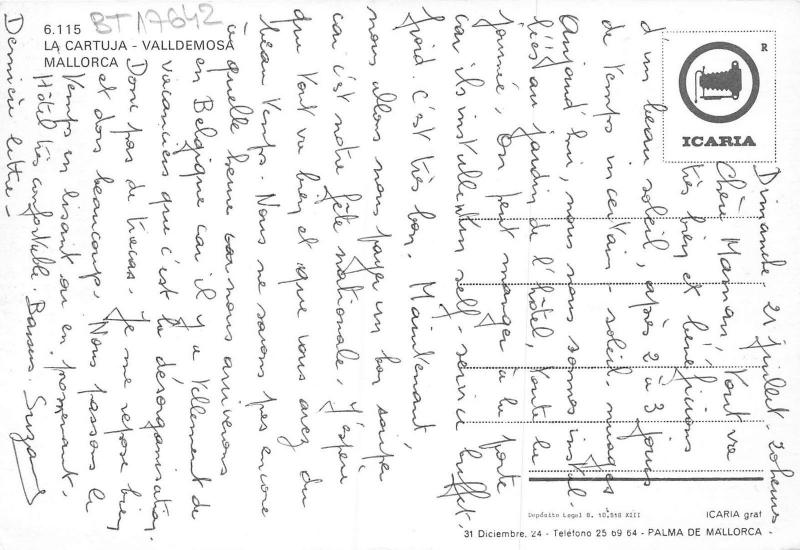 BT 17642
6.115
LA CARTUJA - VALLDEMOSA
MALLORCA
R
ICARIA
Dimanche. 21 juillet.
Chère Maman, Tout va
très bien et bénéficions
d'un beau soleil, après 2 à 3 jours
de temps incertain - soleil - nuages
Aujourd'hui, nous nous sommes instal-
lés au jardin de l'hôtel, toute la
journée, On peut manger à la porte
car ils installent un self-service buffet.
froid. C'est très bon. Maintenant
nous allons nous payer un bon souper
car c'est notre fête nationale. J'espère
que tout va bien et que vous avez du
beau temps. Nous ne savons pas encore
à quelle heure nous arriverons
en Belgique car il y a tellement de
vacanciers que c'est la désorganisation.
Donc pas de tracas. Je me repose bien
et dors beaucoup. Nous passons le
temps en lisant ou en promenant.
Hôtel très confortable. Baisers. Suzanne
Dernière lettre -
Depósito Legal B. 10.518 XIII
ICARIA graf
31 Diciembre, 24 - Teléfono 25 69 64 - PALMA DE MALLORCA -